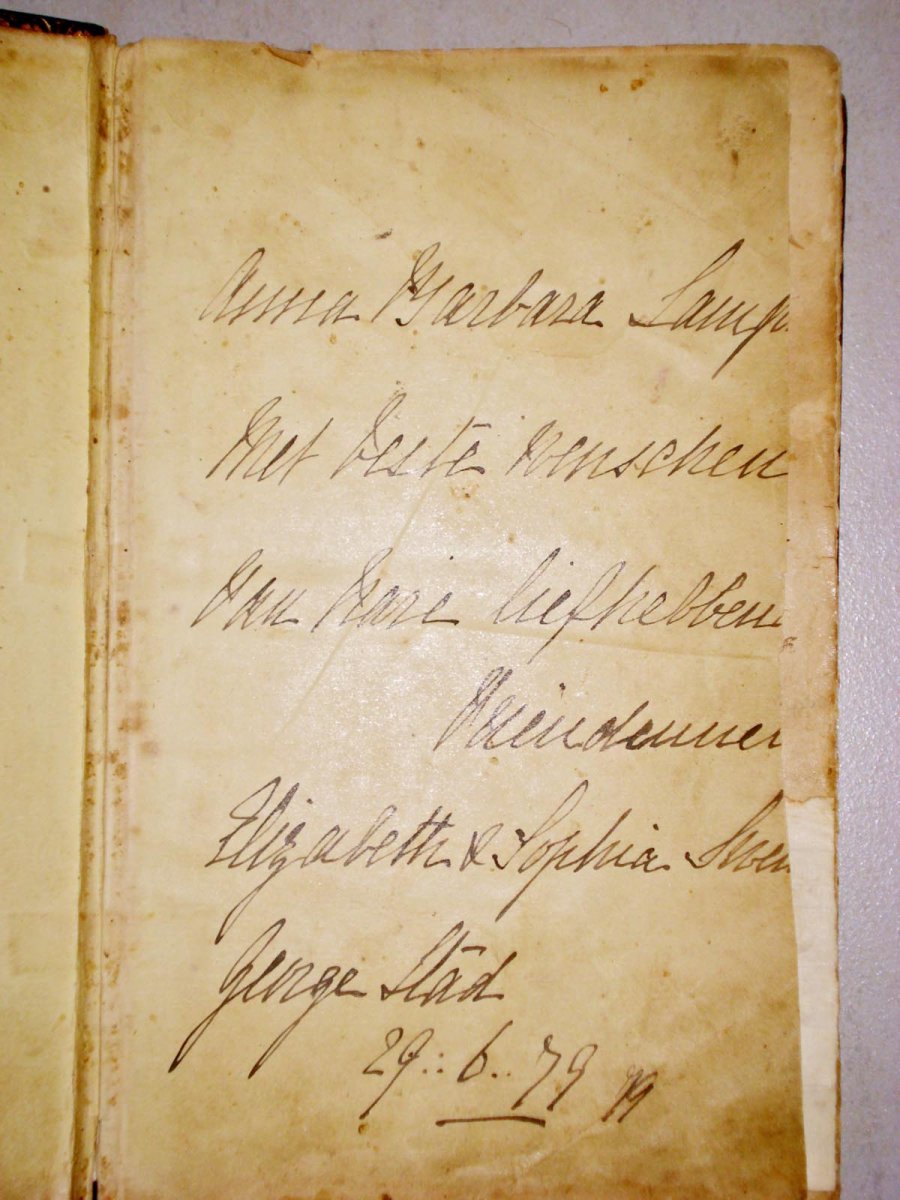 Anna Barbara Lamp
Met beste wenschen
van hare liefhebben
Vriendinnen
Elizabeth & Sophia
George Stad
29..6..79